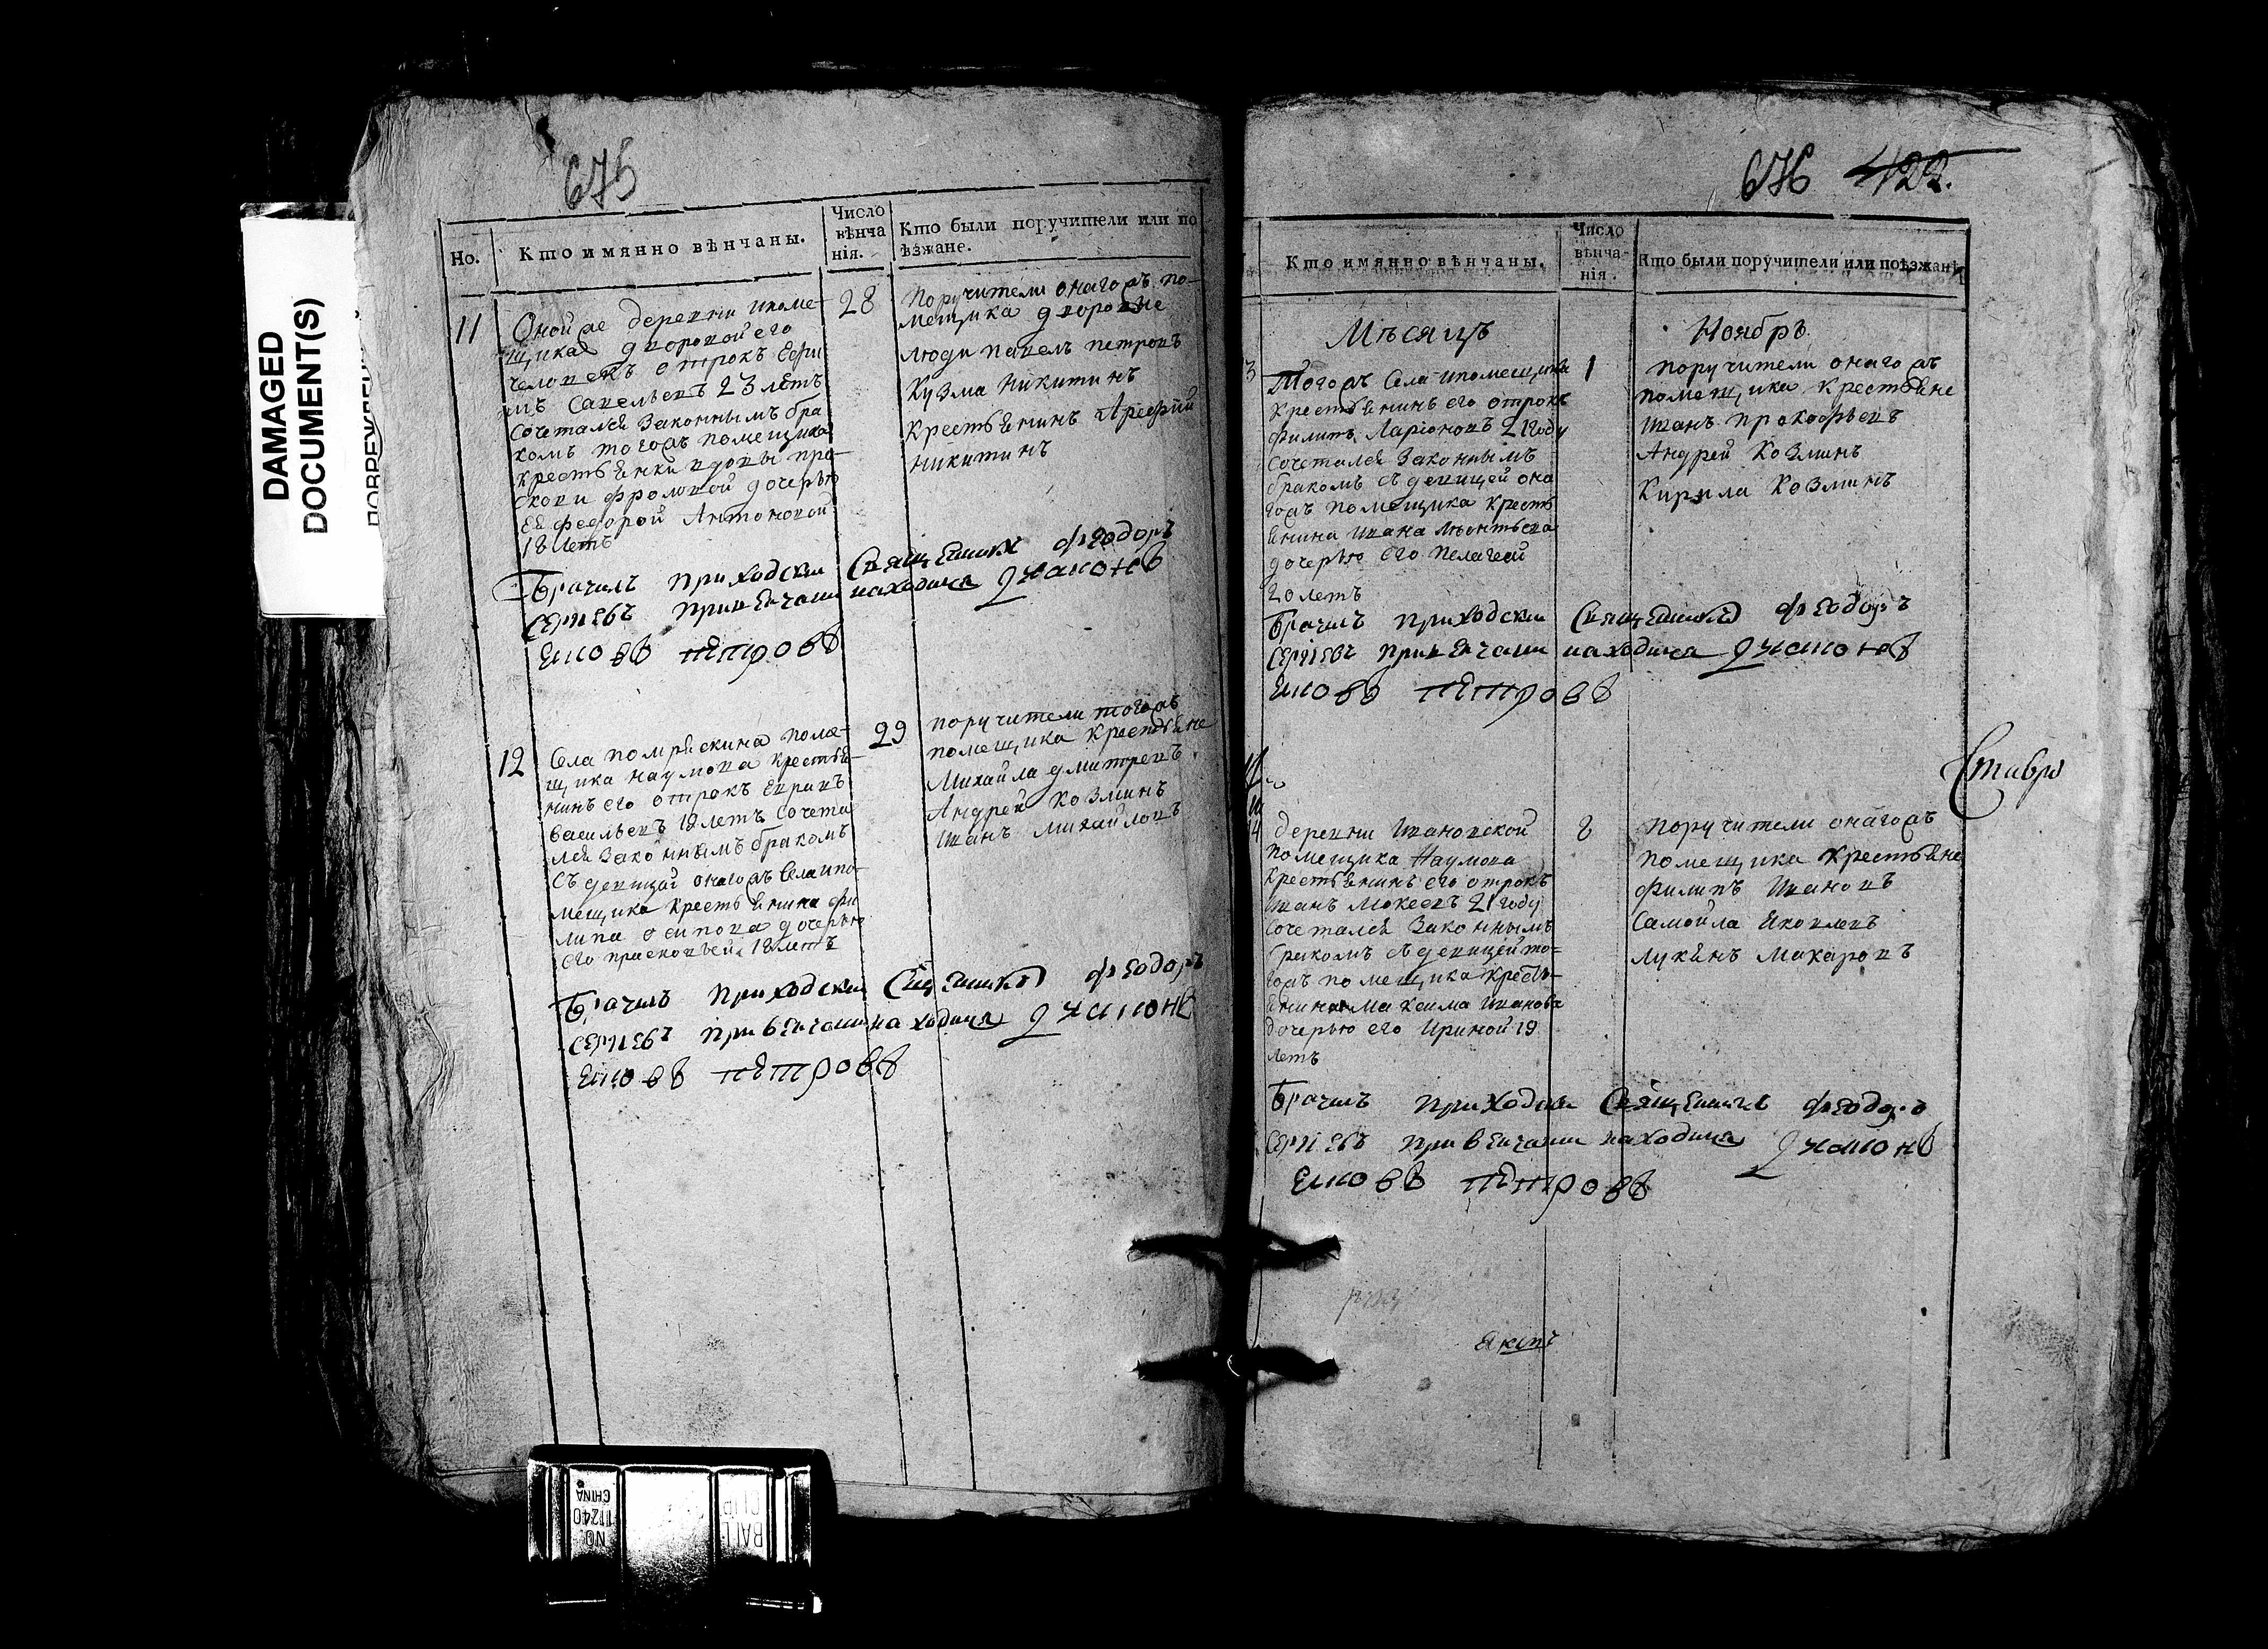 DAMAGED
DOCUMENT(S)
675
Но.
Кто имянно вѣнчаны.
Число
вѣнча
нія.
Кто были поручители или по
ѣзжане.
11
Оной же деревни ипоме-
щика дворовой его
человекъ отрокъ Ефи
мъ Савельевъ 23 летъ
сочетался законнымъ бра
комъ тогожъ помещика
крестьянки вдовы пра-
сковьи Фроловой дочерью
ея Федорой Антоновой
18 летъ
28
Поручители онагожъ по-
мещика дворовые
люди Павелъ Петровъ
Кузма Никитинъ
крестьянинъ Арефий
Никитинъ
Брачилъ приходски священникъ Феодоръ
Сергиевъ при венчани находился дьяконъ
Яковъ Петровъ
12
Села помряскина поме-
щика Наумова крестья-
нинъ его отрокъ
Васильевъ 18 летъ сочета
лся законнымъ бракомъ
съ девицей онагожъ села ипо-
мещика крестьянина Фи
липа Осипова дочерью
его Прасковьей 18 летъ
29
поручители тогожъ
помещика крестьяне
Михайла Дмитревъ
Андрей Козминъ
Иванъ Михайловъ
Брачилъ приходски священникъ Феодоръ
Сергиевъ при венчани находился дьяконъ
Яковъ Петровъ
676 422.
Кто имянно вѣнчаны.
Число
вѣнча-
нія.
Кто были поручители или поѣзжанѣ
Мѣсяцъ
Ноябрь
3
Тогожъ села ипомещика
крестьянинъ его отрокъ
Филипъ Ларионовъ 21 году
сочетался законнымъ
бракомъ съ девицей она
гожъ помещика кресть
янина Ивана Леонтьева
дочерью его Пелагеей
20 летъ
1
поручители онагожъ
помещика крестьяне
Иванъ Прокофьевъ
Андрей Козминъ
Кирила Козминъ
Брачилъ приходски священникъ Феодоръ
Сергиевъ при венчани находился дьяконъ
Яковъ Петровъ
Ставро
4
деревни Ивановской
помещика Наумова
крестьянинъ его отрокъ
Иванъ Мокеевъ 21 году
сочетался законнымъ
бракомъ съ девицей то-
гожъ помещика кресть-
янина Максима Иванова
дочерью его Ириной 19
летъ
8
Поручители онагожъ
помещика крестьяне
Филипъ Ивановъ
Самойла Яковлевъ
Лукьянъ Макаровъ
Брачилъ приходски священникъ Феодоръ
Сергиевъ при венчани находился дьяконъ
Яковъ Петровъ
NO.
11240
CHINA